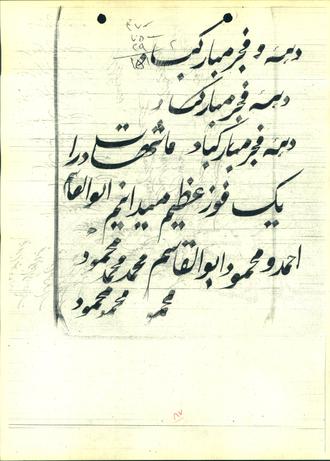 دهه و فجر مبارکب
دهه فجر مبارکب
دهه فجر مبارکباد
یک فوز عظیم میدانیم ابوالقاسم
احمد و محمود ابوالقاسم محمد محمد محمود
محمد محمد محمود
۸۷